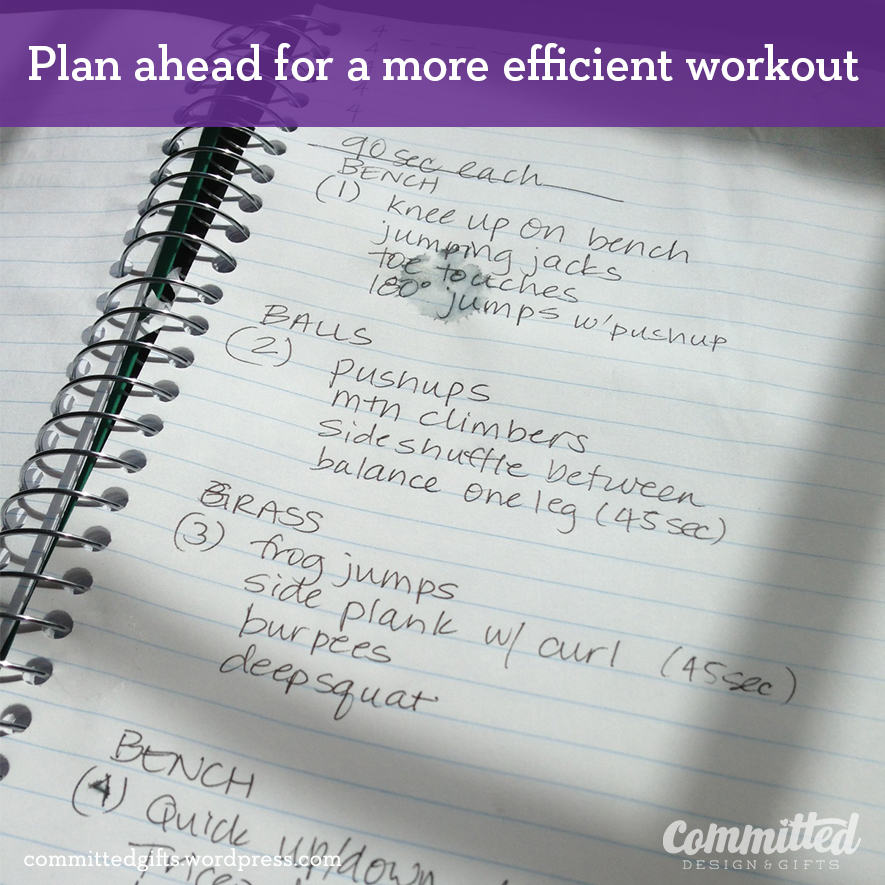 Plan ahead for a more efficient workout
4
4
4
4
90 sec each
BENCH
(1) knee up on bench
jumping jacks
toe touches
180° jumps w/ pushup
BALLS
(2)
pushups
mtn climbers
side shuffle between
balance one leg (45 sec)
GRASS
(3) frog jumps
side plank w/ curl (45 sec)
burpees
deep squat
BENCH
(4) Quick up/down
committedgifts.wordpress.com
Committed
DESIGN & GIFTS